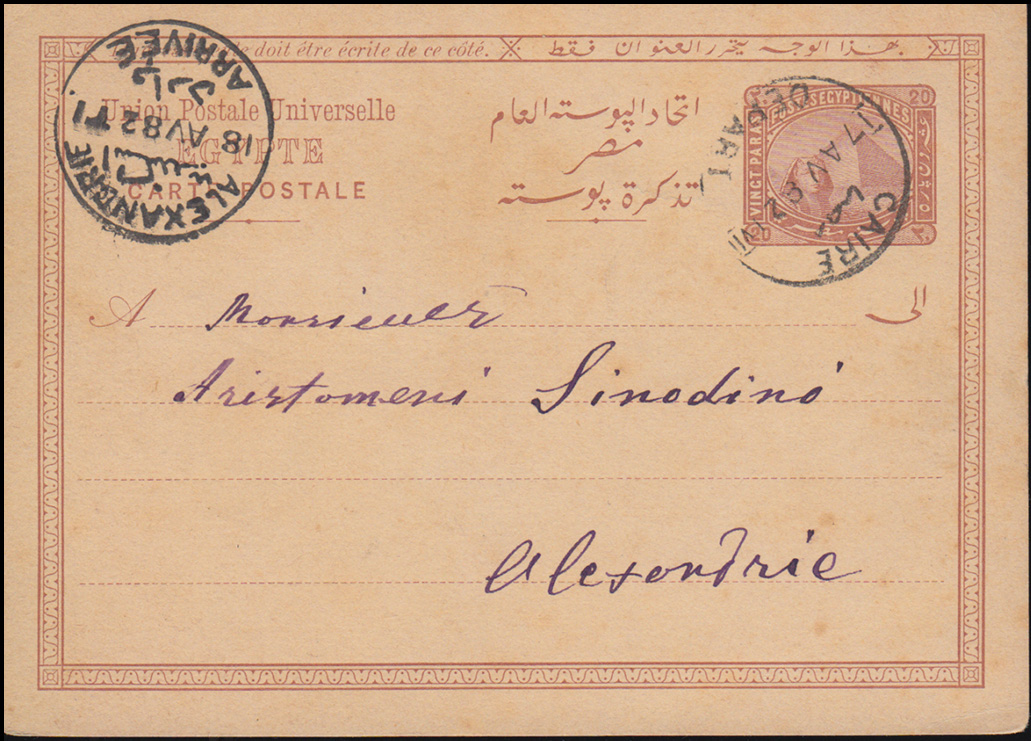 doit être écrite de ce côté. بهذا الوجه يتحرر العنوان فقط
Union Postale Universelle
اتحاد البوسته العام
EGYPTE
مصر
CARTE POSTALE
تذكرة بوسته
ALEXANDRIE
18 AV 82 T1
ARRIVÉE
20
POSTES EGYPTIENNES
VINGT PARAS
20
CAIRE
17 AV 82
DEPART
A Monsieur الى
Aristomeni Sinodino
Alexandrie